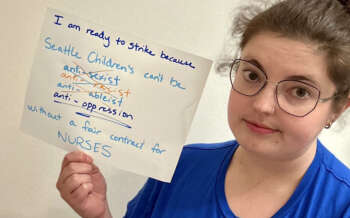 I am ready to strike because
Seattle Children's can't be
anti-sexist
anti-racist
anti-ableist
anti-oppression
without a fair contract for
NURSES